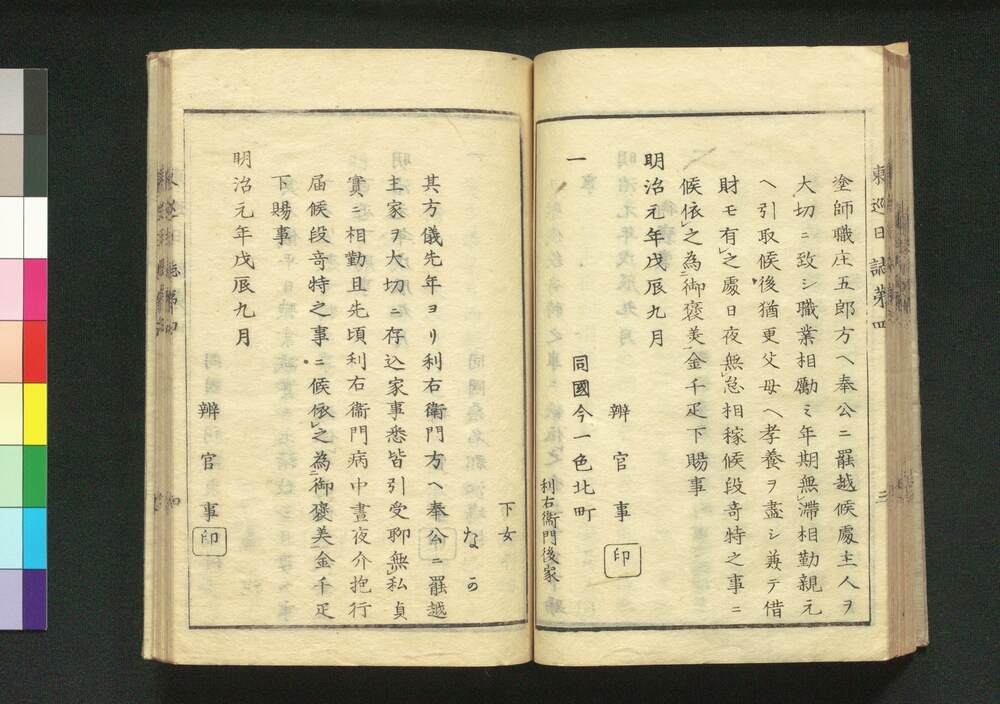 東巡日誌第四 三
塗師職庄五郎方ヘ奉公ニ罷越候處主人ヲ
大切ニ致シ職業相勵ミ年期無滯相勤親元
ヘ引取候後猶更父母ヘ孝養ヲ盡シ兼テ借
財モ有之處日夜無怠相稼候段奇特之事ニ
候依之為御褒美金千疋下賜事
明治元年戊辰九月
辨官事 印
一 同國今一色北町
利右衞門後家
下女
なか
其方儀先年ヨリ利右衞門方ヘ奉公ニ罷越
主家ヲ大切ニ存込家事悉皆引受聊無私貞
實ニ相勤且先頃利右衞門病中晝夜介抱行
届候段竒特之事ニ候依之為御褒美金千疋
下賜事
明治元年戊辰九月
辨官事 印